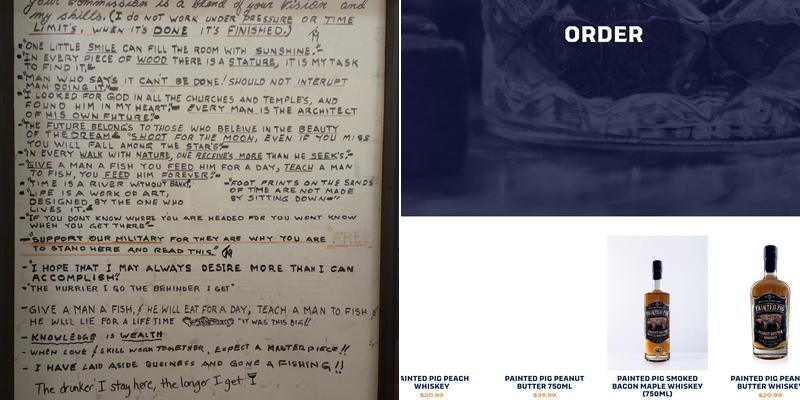 Your commission is a blend of your vision and
my skills. (I DO NOT WORK UNDER PRESSURE OR TIME
LIMIT'S, WHEN IT'S DONE IT'S FINISHED.)
"ONE LITTLE SMILE CAN FILL THE ROOM WITH SUNSHINE."
"IN EVERY PIECE OF WOOD THERE IS A STATURE, IT IS MY TASK
TO FIND IT."
"MAN WHO SAY'S IT CAN'T BE DONE! SHOULD NOT INTERUPT
MAN DOING IT."
"I LOOKED FOR GOD IN ALL THE CHURCHES AND TEMPLE'S, AND
FOUND HIM IN MY HEART." EVERY MAN IS THE ARCHITECT
OF HIS OWN FUTURE."
"THE FUTURE BELONG'S TO THOSE WHO BELEIVE IN THE BEAUTY
OF THE DREAM" "SHOOT FOR THE MOON, EVEN IF YOU MISS
YOU WILL FALL AMONG THE STAR'S"
"IN EVERY WALK WITH NATURE, ONE RECEIVE'S MORE THAN HE SEEK'S."
"GIVE A MAN A FISH YOU FEED HIM FOR A DAY, TEACH A MAN
TO FISH, YOU FEED HIM FOREVER."
"TIME IS A RIVER WITHOUT BANK'S"
"LIFE IS A WORK OF ART,
DESIGNED BY THE ONE WHO
LIVES IT."
"FOOT PRINTS ON THE SANDS
OF TIME ARE NOT MADE
BY SITTING DOWN"
"IF YOU DONT KNOW WHERE YOU ARE HEADED FOR YOU WONT KNOW
WHEN YOU GET THERE"
"SUPPORT OUR MILITARY FOR THEY ARE WHY YOU ARE FREE
TO STAND HERE AND READ THIS."
"I HOPE THAT I MAY ALWAYS DESIRE MORE THAN I CAN
ACCOMPLISH."
"THE HURRIER I GO THE BEHINDER I GET"
- GIVE A MAN A FISH, & HE WILL EAT FOR A DAY, TEACH A MAN TO FISH &
HE WILL LIE FOR A LIFETIME "IT WAS THIS BIG!!
- KNOWLEDGE IS WEALTH
- WHEN LOVE & SKILL WORK TOGETHER, EXPECT A MASTERPIECE!!
- I HAVE LAID ASIDE BUSINESS AND GONE A FISHING!!
The drunker I stay here, the longer I get
ORDER
PAINTED PIG
PAINTED PIG
PAINTED PIG PEACH
WHISKEY
$20.99
PAINTED PIG PEANUT
BUTTER 750ML
$35.99
PAINTED PIG SMOKED
BACON MAPLE WHISKEY
(750ML)
PAINTED PIG PEAN
BUTTER WHISKEY
$20.99